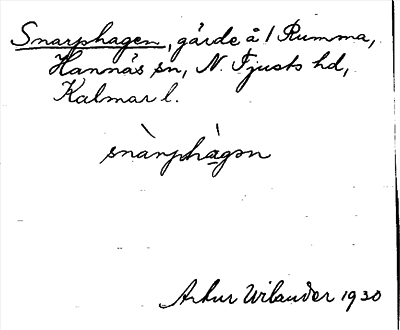 Snarphagen, gärde å 1 Rumma,
Hannäs sn, N. Tjusts hd,
Kalmar l.
snànphàgən
Arthur Wilander 1930